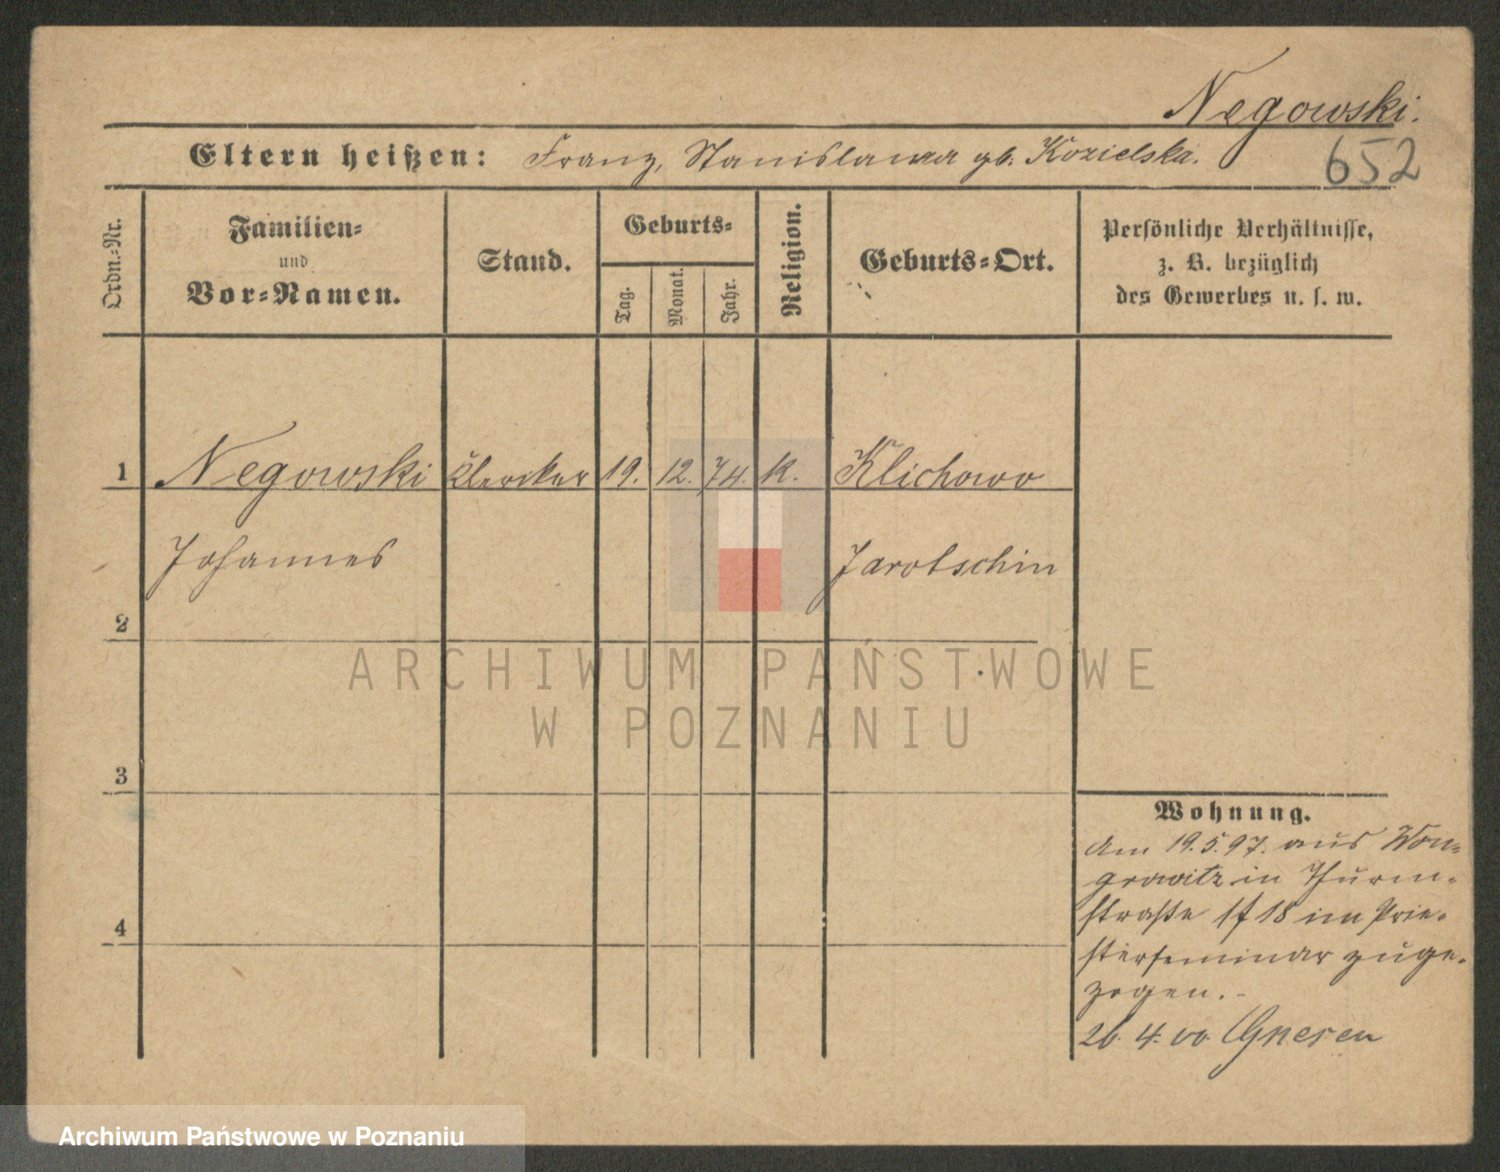 Negowski.
Eltern heißen: Franz, Stanislawa gb. Kozielska.
652
Ordn.-Nr.
Familien-
und
Vor-Namen.
Stand.
Geburts-
Tag.
Monat.
Jahr.
Religion.
Geburts-Ort.
Persönliche Verhältnisse,
z. B. bezüglich
des Gewerbes u. s. w.
1 Negowski Kleriker 19. 12. 74. k. Klichowo
Johannes Jarotschin
2
ARCHIWUM PAŃSTWOWE
W POZNANIU
3
Wohnung.
Am 19.5.97. aus Won-
growitz in Thurm-
straße 17/18 im Prie-
sterseminar zuge-
zogen.-
26. 4. 00 Gnesen
4
Archiwum Państwowe w Poznaniu